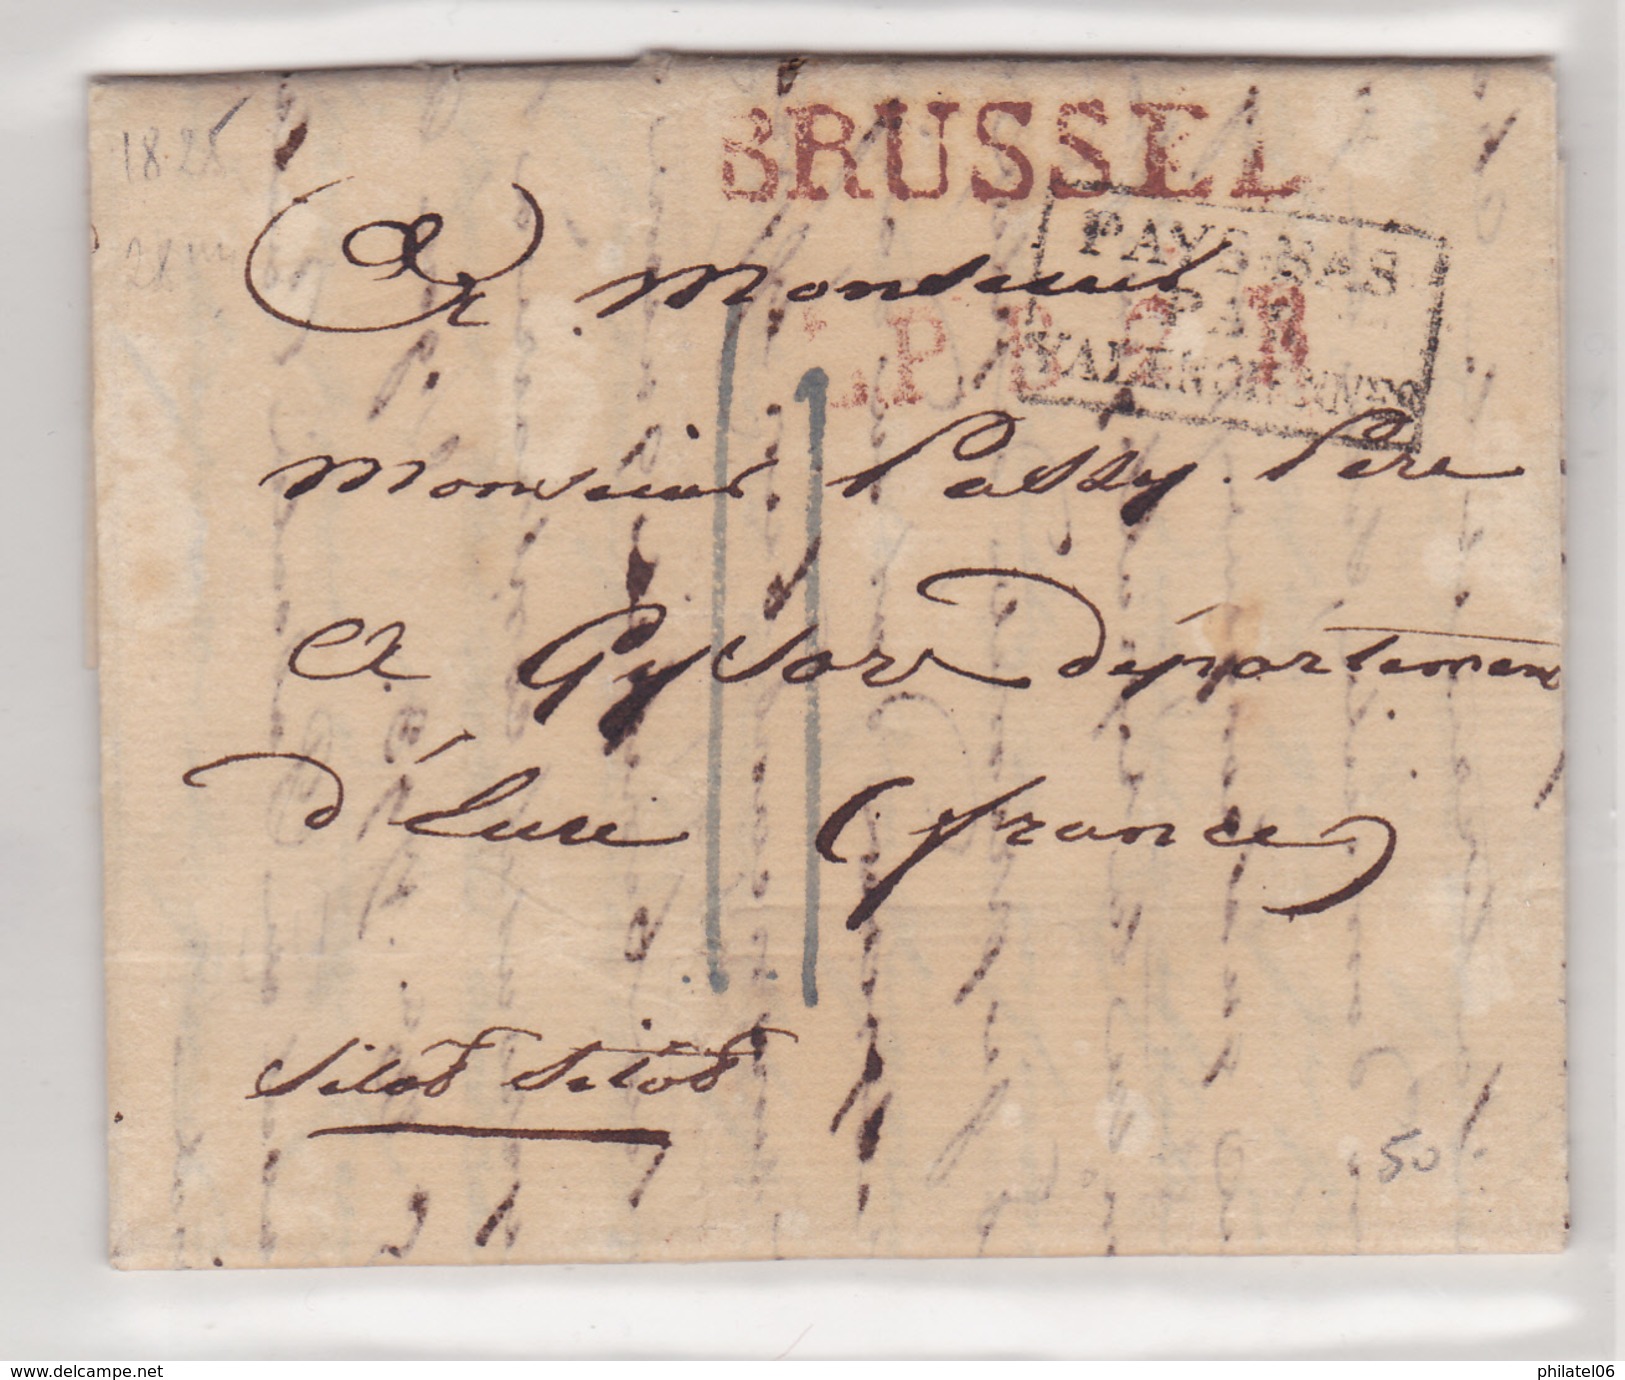 1825
BRUSSEL
PAYS-BAS
PAR
VALENCIENNES
L.P.B.2.R
A Monsieur
Monsieur Passy Père
A Gysors département
d'Eure (france)
Sitot Sitot
50
delcampe.net
philatel06